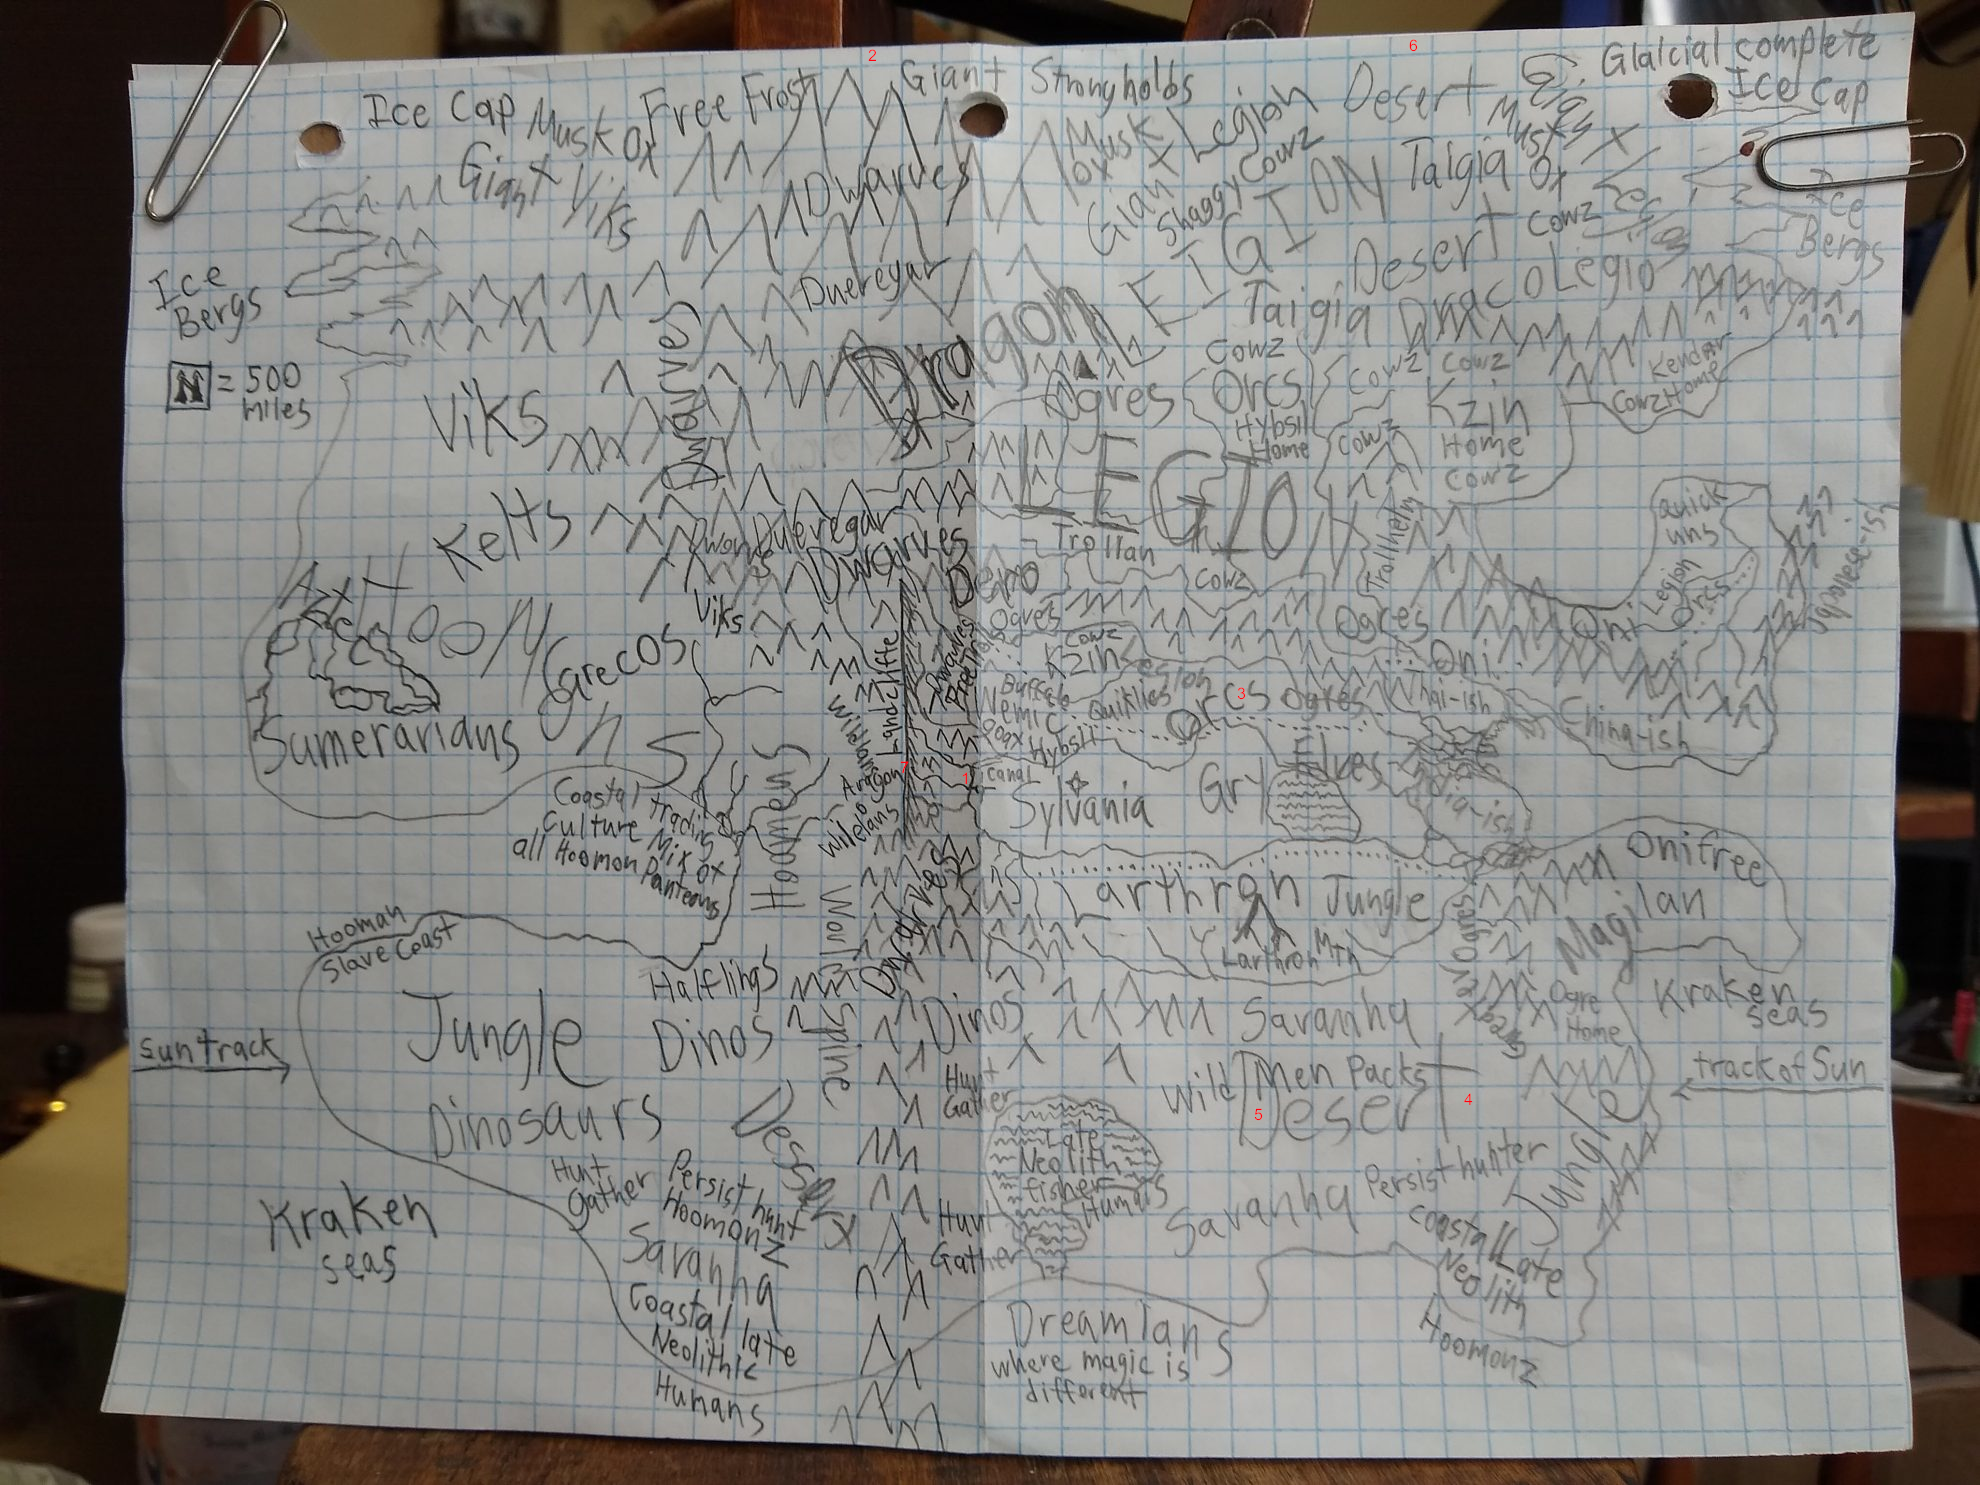 Glalcial complete
Ice Cap
Giant Strongholds
Ice Cap
Musk Ox
Free Frost
Giant
Viks
Dwarves
Musk
ox
Giant Legion
Shaggy Cowz
LEIGION
Desert
Taigia
Musk
Ox
Cowz
Desert
Taigia
DracoLegio
Ice
Bergs
Ice
Bergs
N = 500
miles
Duereyar
Dragon
Dwarves
Viks
Ogres
Cowz
Orcs
Hybsil
Home
Cowz
Cowz
Cowz
Kzin
Home
Cowz
Kendar
Home
Cowz
LEGION
Kelts
Dueregar
Dwarves
Viks
Trollan
Cowz
Trollhelm
Quick
uns
Legion
Orcs
Japonese-ish
Demo
Ogres
Cowz
Kzin
Legion
Ogres
Oni
Oni
Axt
Hoomans
Grecos
Sumerarians
Landcliffe
Wildlans
Aragon
Wildelans
Buffalo
Nemic
Quiklies
Hybsil
Orcs
Ogres
Thai-ish
China-ish
Canal
Sylvania
Gry Elves
India-ish
Coastal trading
Culture Mix of
all Hoomon Panteons
Hoomens
Onifree
Magi lan
Larthron Jungle
Larthron Mtn
Dwarves
World Spine
Hooman
Slave Coast
Halflings
Jungle
Dinos
Dinos
Savanha
Ogre
Home
Kraken
seas
sun track
track of Sun
Dinosaurs
Hunt
Gather
Wild Men Packs
Desert
Jungle
Dessert
Late
Neolith
fisher
Humans
Hunt
Gather
Persist hunt
Hoomonz
Savanha
Persist hunter
Savanha
Coastal Late
Neolith
Hoomonz
Kraken
seas
Hunt
Gather
Coastal late
Neolithic
Humans
Dreamlans
where magic is
different
1
2
3
4
5
6
7